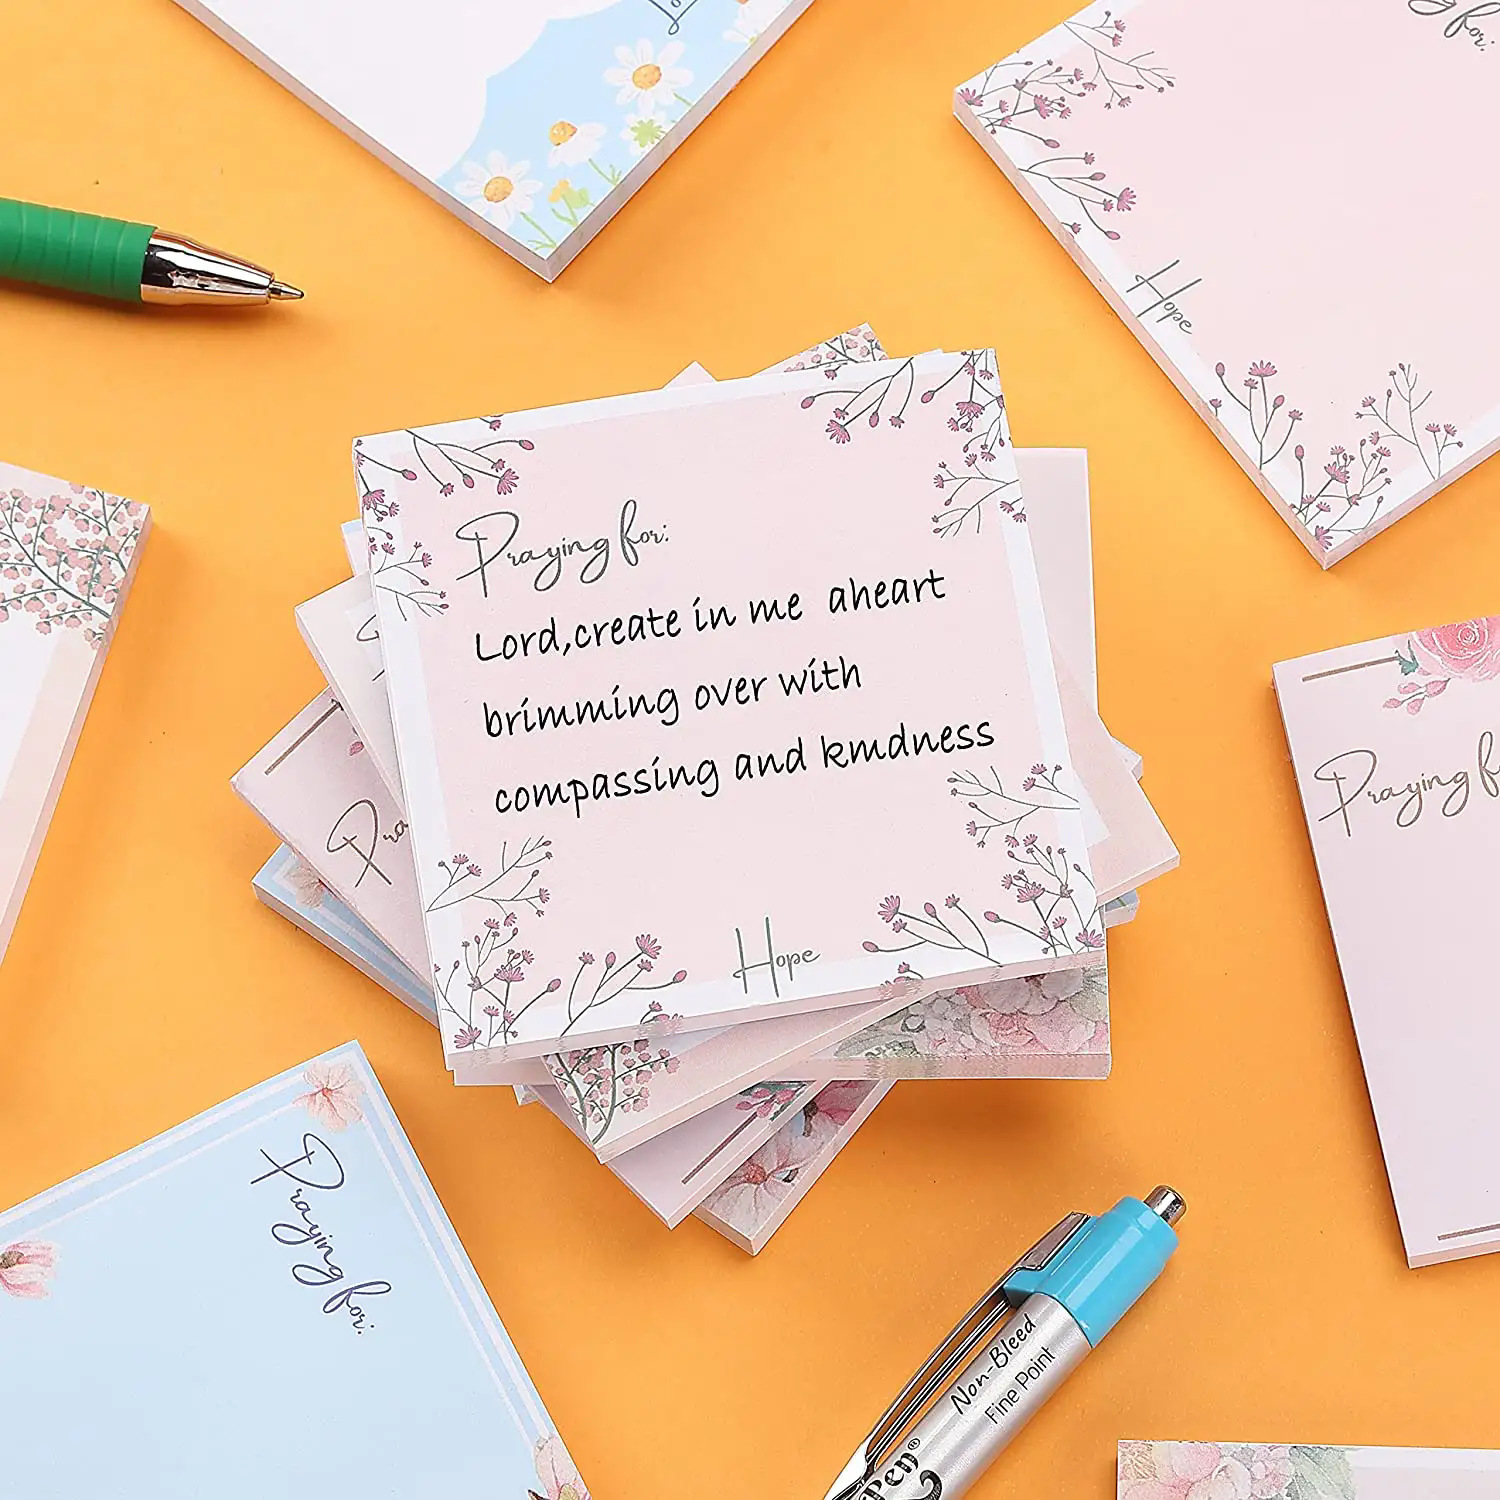 Praying for:
Lord,create in me aheart
brimming over with
compassing and kmdness
Hope
Praying for:
Hope
Praying for:
Non-Bleed
Fine Point
Pen®
for:
Pra